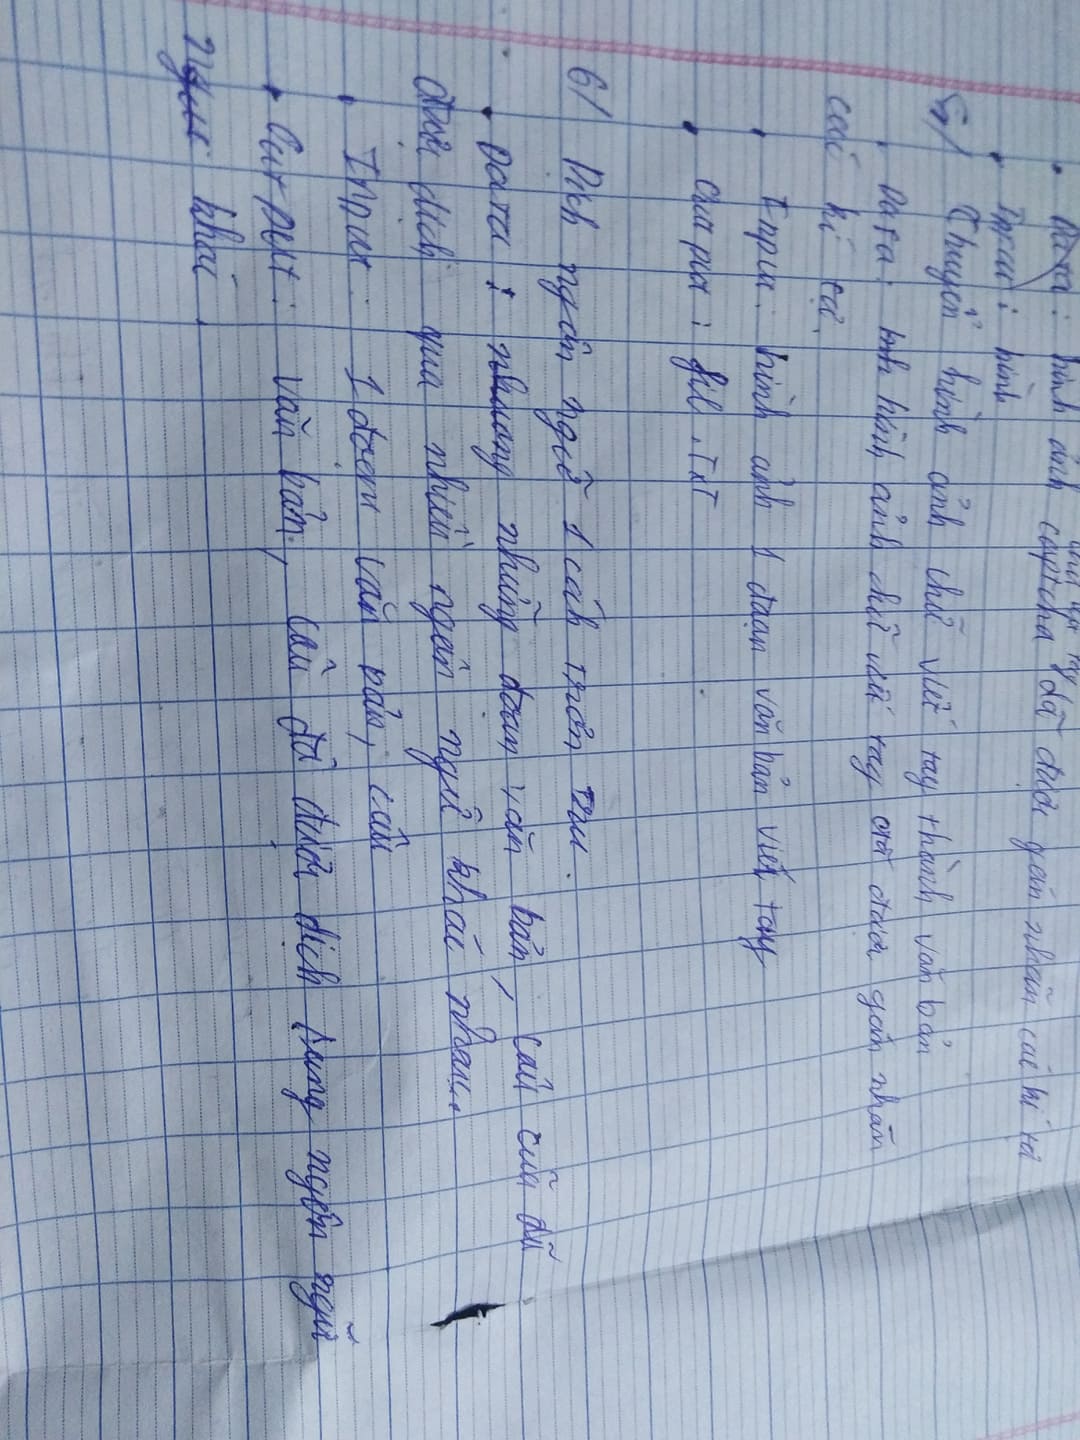 • Data: hình ảnh captcha đã được gán nhãn các kí tự
• Input: hình
5/ Chuyển hình ảnh chữ viết tay thành văn bản
. Data: hình ảnh chữ viết tay đã được gán nhãn
các kí tự.
• Input: hình ảnh 1 đoạn văn bản viết tay
• Output: fil .TxT
6/ Dịch ngôn ngữ 1 cách trơn tru.
• Data: những đoạn văn bản, câu cũ đã
được dịch qua nhiều ngôn ngữ khác nhau.
• Input: 1 đoạn văn bản, câu
• Output: văn bản, câu đã được dịch sang ngôn ngữ
khác.